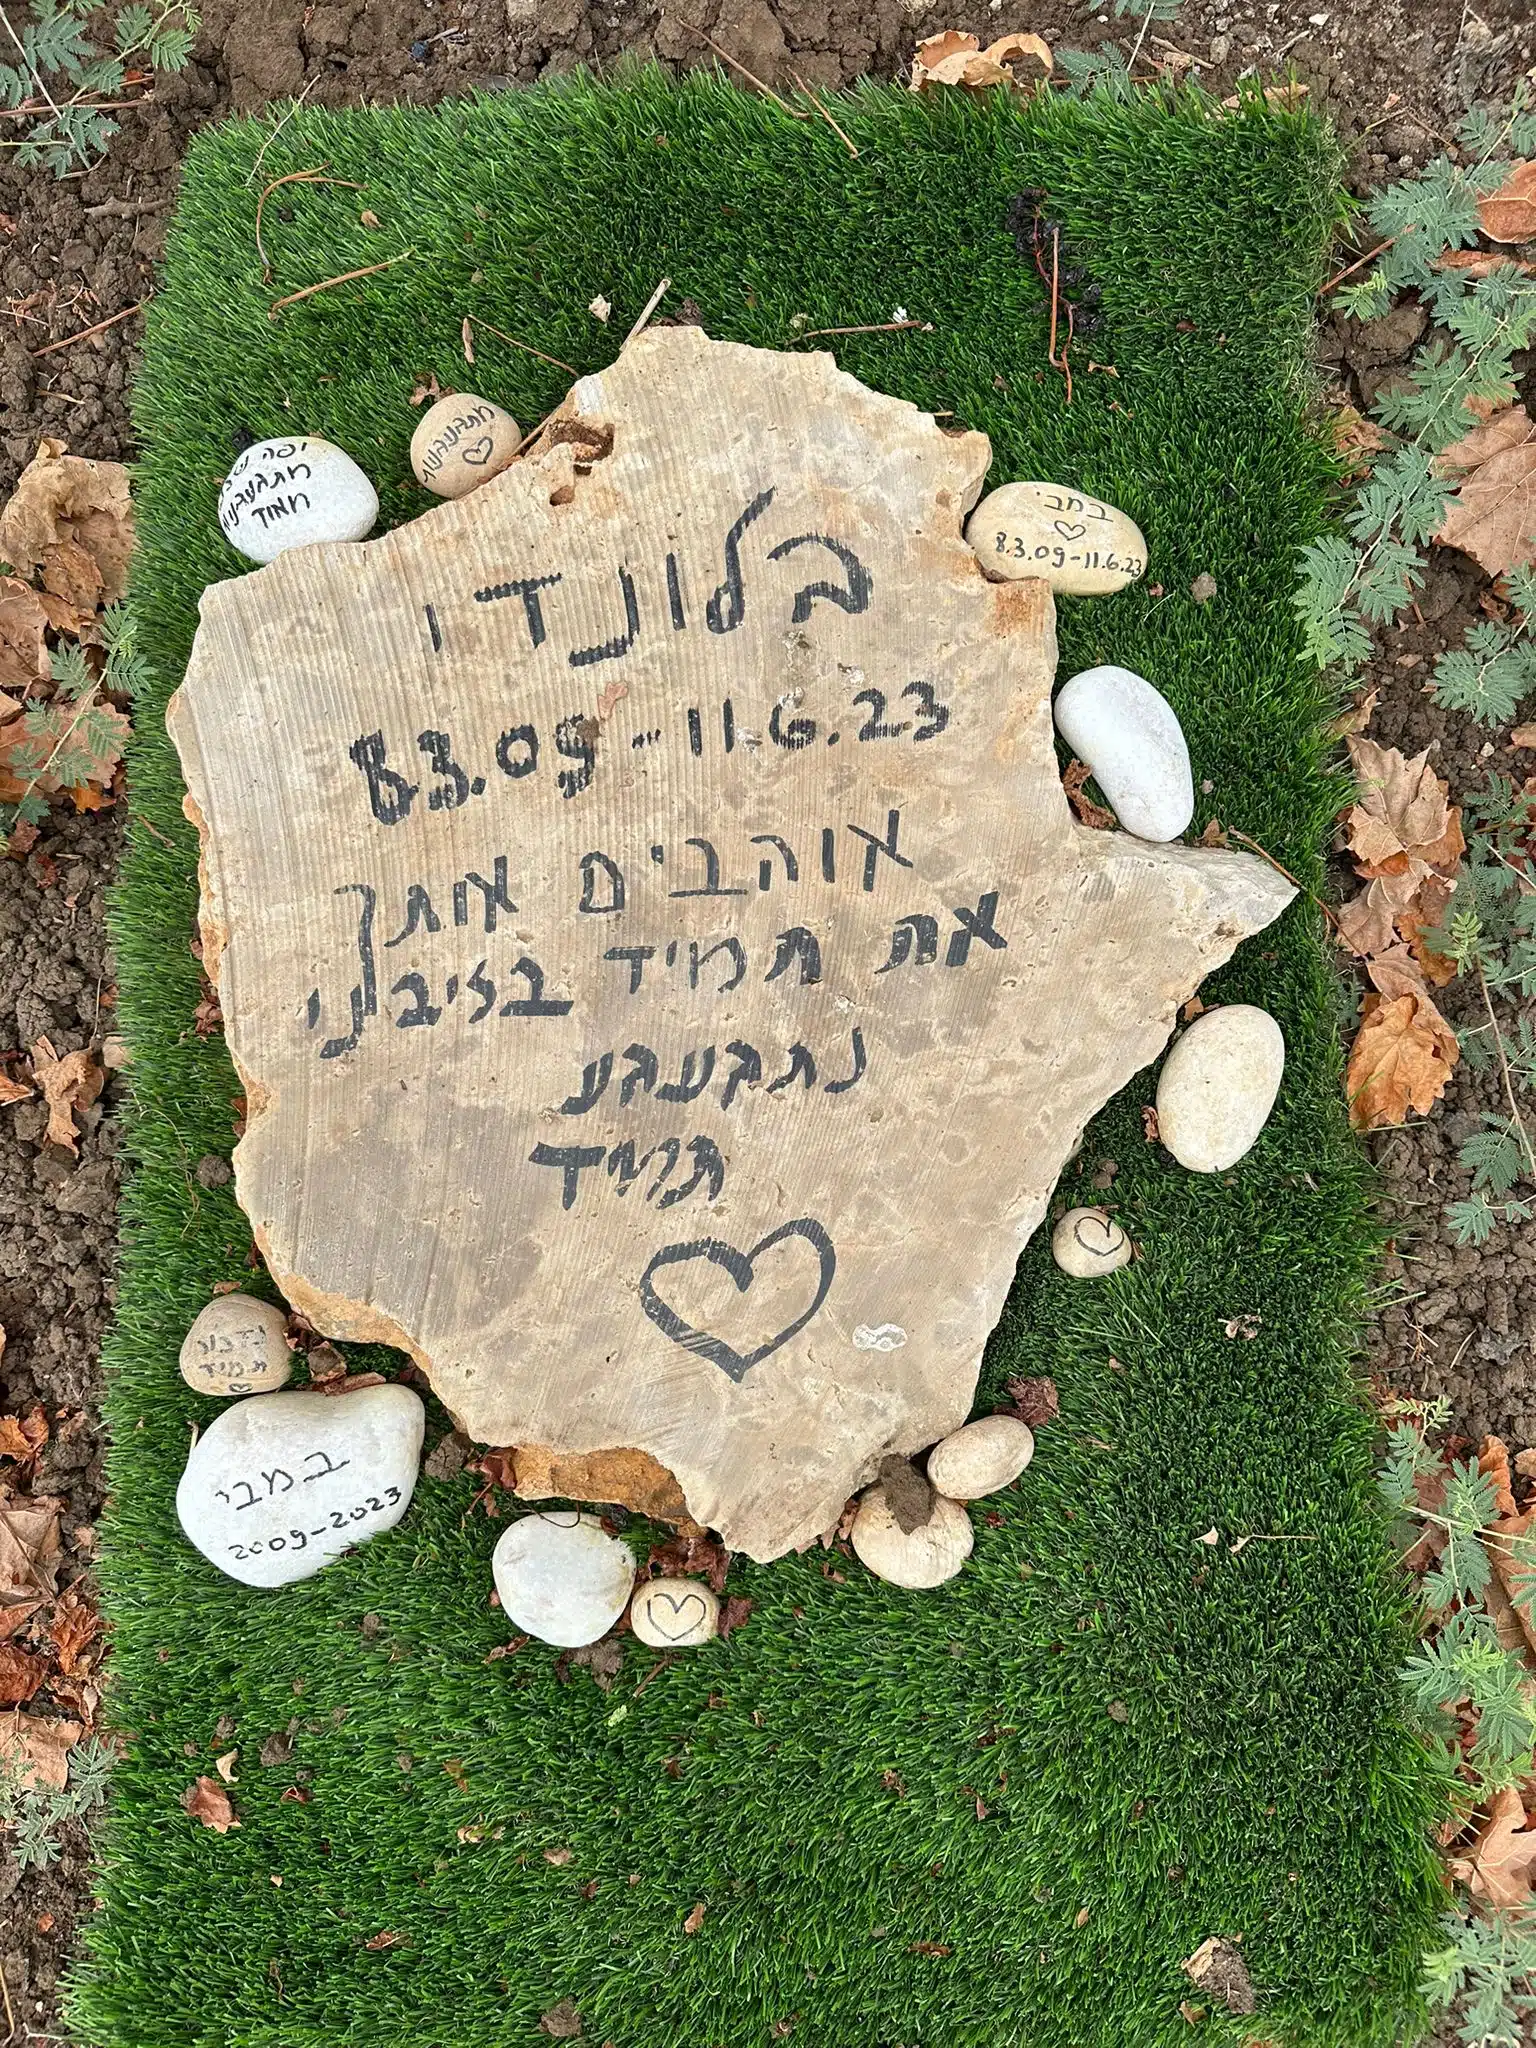 יפה
מתגעגעים
מאוד
מתגעגעת
במבי
8.3.09-11.6.23
בלונדי
8.3.09-11.6.23
אוהבים אותך
את תמיד בליבנו
נתגעגע
תמיד
תמיד
במבי
2009-2023